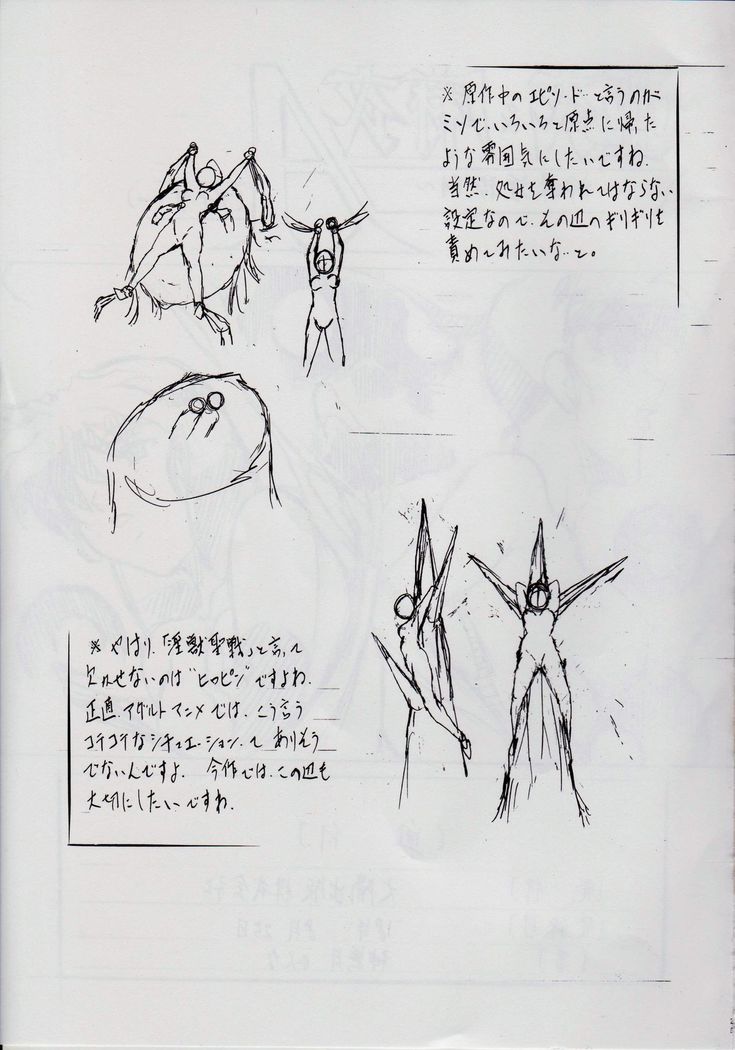 ※ 原作中のエピソードと言うのが
ミソで、いろいろと原点に帰った
ような雰囲気にしたいですね。
当然、処女を奪われてはならない
設定なので、その辺へギリギリを
責めてみたいなって。
※ やはり、「淫獣聖戦」と言って
欠かせないのは“ヒロピン”ですよね。
正直、アダルトアニメでは、こう言う
コテコテなシチュエーションってありそう
でないんですよ。 今作では、この辺も
大切にしたいですね。